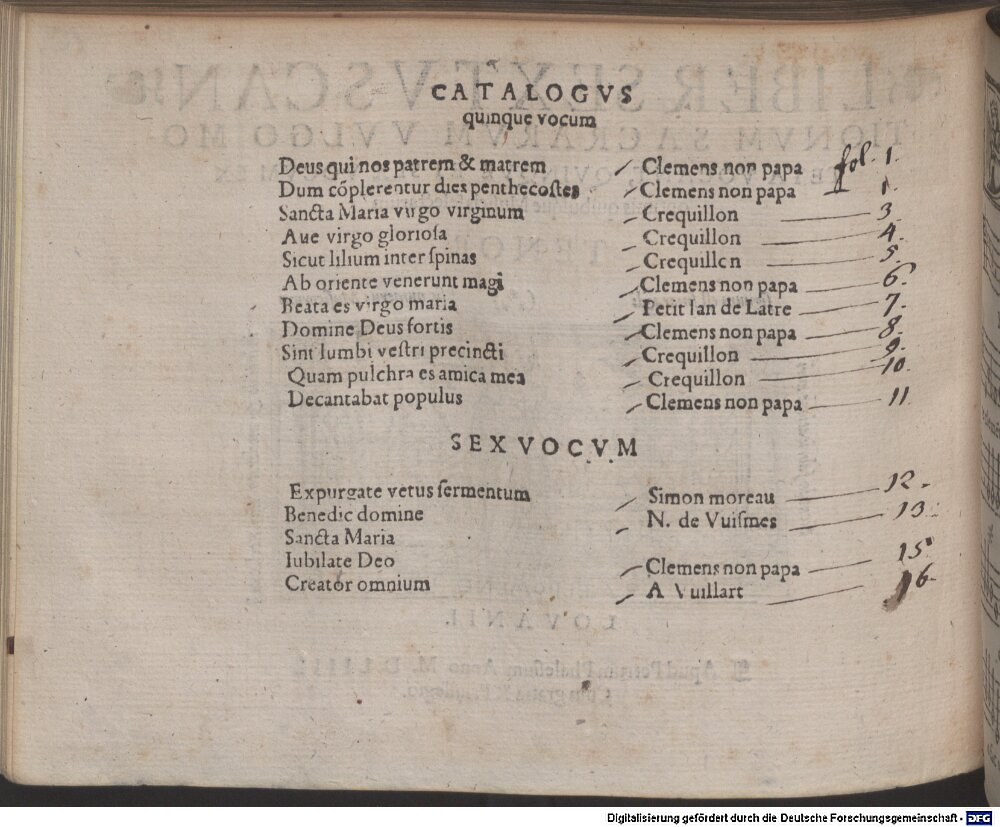 CATALOGVS
quinque vocum
Deus qui nos patrem & matrem Clemens non papa fol. 1.
Dum cõplerentur dies penthecostes Clemens non papa 1.
Sancta Maria virgo virginum Crequillon 3
Aue virgo gloriosa Crequillon 4.
Sicut lilium inter spinas Crequillon 5.
Ab oriente venerunt magi Clemens non papa 6.
Beata es virgo maria Petit Ian de Latre 7.
Domine Deus fortis Clemens non papa 8.
Sint lumbi vestri precincti Crequillon 9.
Quam pulchra es amica mea Crequillon 10.
Decantabat populus Clemens non papa 11.
SEX VOCVM
Expurgate vetus fermentum Simon moreau 12.
Benedic domine N. de Vuismes 13.
Sancta Maria
Iubilate Deo Clemens non papa 15
Creator omnium A Vuillart 16
Digitalisierung gefördert durch die Deutsche Forschungsgemeinschaft - DFG